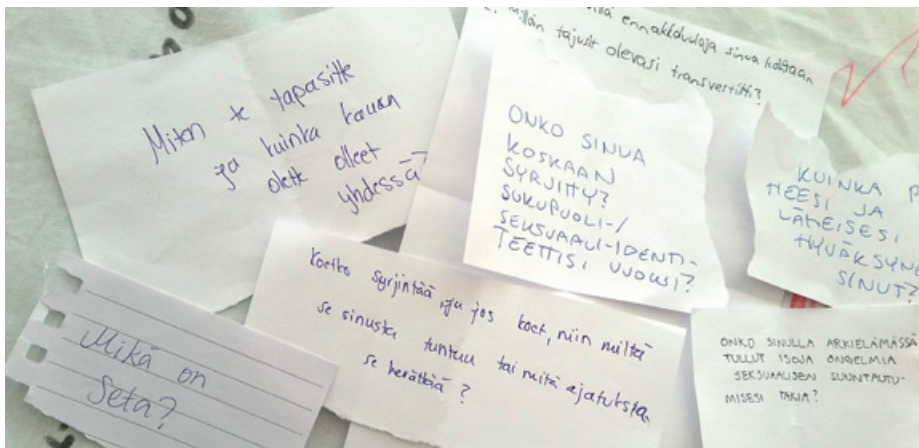 Miten te tapasitte
ja kuinka kauan
olette olleet
yhdessä?
ennakkoluuloja sinua kohtaan
tajusit olevasi transvestiitti?
ONKO SINUA
KOSKAAN
SYRJITTY?
SUKUPUOLI-/
SEKSUAALI-IDENTI-
TEETTISI VUOKSI?
KUINKA P
HEESI JA
LÄHEISESI
HYVÄKSYN
SINUT?
Koetko syrjintää, ja jos koet, niin miltä
se sinusta tuntuu tai mitä ajatuksia
se herättää?
Mikä on
Seta?
ONKO SINULLA ARKIELÄMÄSSÄ
TULLUT ISOJA ONGELMIA
SEKSUAALISEN SUUNTAUTU-
MISESI TAKIA?